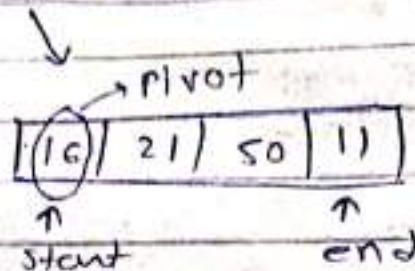 pivot
16 21 50 11
start end